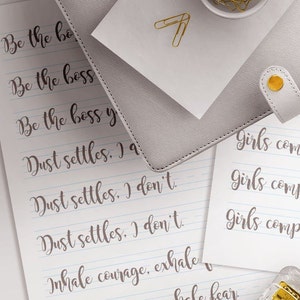 Be the bo
Be the boss
Be the boss y
Dust settles, I d
Dust settles, I don't.
Dust settles, I don't.
Inhale courage, exhale f
hale fear
Girls comp
Girls comp
Girls comp